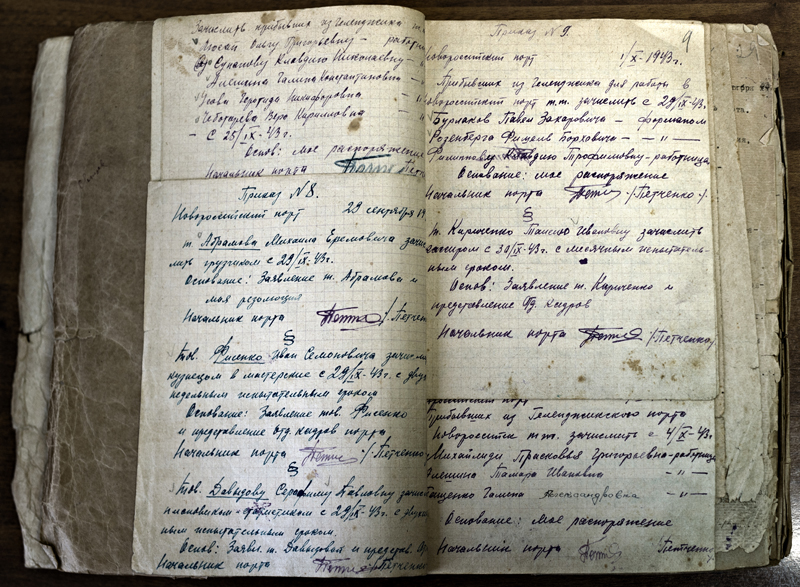 Зачислить прибывших из Геленджика
Мосай Ольгу Григорьевну – работн
Сунайеву Клавдию Николаевну – "
Галина Константиновна – "
Чеботарева Вера Кирилловна – "
– с 25/IX-43 г.
Основ: мое распоряжение
Начальник порта
Приказ № 8.
Новороссийский порт 29 сентября 19
т. Абрамова Михаила Еремовича зачис
лить грузчиком с 29/IX-43 г.
Основание: Заявление т. Абрамова и
моя резолюция
Начальник порта /Петчен
§
Тов. Фисенко Иван Семеновича зачисли
кузнецом в мастерские с 29/IX-43 г. с двух
недельным испытательным сроком
Основание: Заявление тов. Фисенко
и представление Отд. кадров порта
Начальник порта /-Петченко
§
Тов. Давыдову Серафиму Павловну зачис
плановиком - с 29/IX-43 г. с двухне
ным испытательным сроком.
Основ: Заявл. т. Давыдовой и представ. От
Начальник порта /Петченко
9
Приказ № 9.
Новороссийский порт 1/X-1943 г.
Прибывших из Геленджика для работы в
Новороссийский порт т.т. зачислить с 29/IX-43 г.
Бурлаков Павел Захарович – форманом
Розенберга Боруховича – " –
Филиппову Клавдию Трофимовну – работница
Основание: мое распоряжение
Начальник порта /-Петченко-/
§
т. Кириченко Ивановну зачислить
кассиром с 30/IX-43 г. с месячным испытатель-
ным сроком.
Основ: Заявление т. Кириченко и
представление Отд. кадров
Начальник порта /-Петченко/
Прибывших из Геленджикского порта
Новороссийск т.т. зачислить с 4/X-43 г.
Михайлиди Прасковья Григорьевна – работница
Тамара Ивановна – " –
Галина Александровна – " –
Основание: Мое распоряжение
Начальник порта Петченко